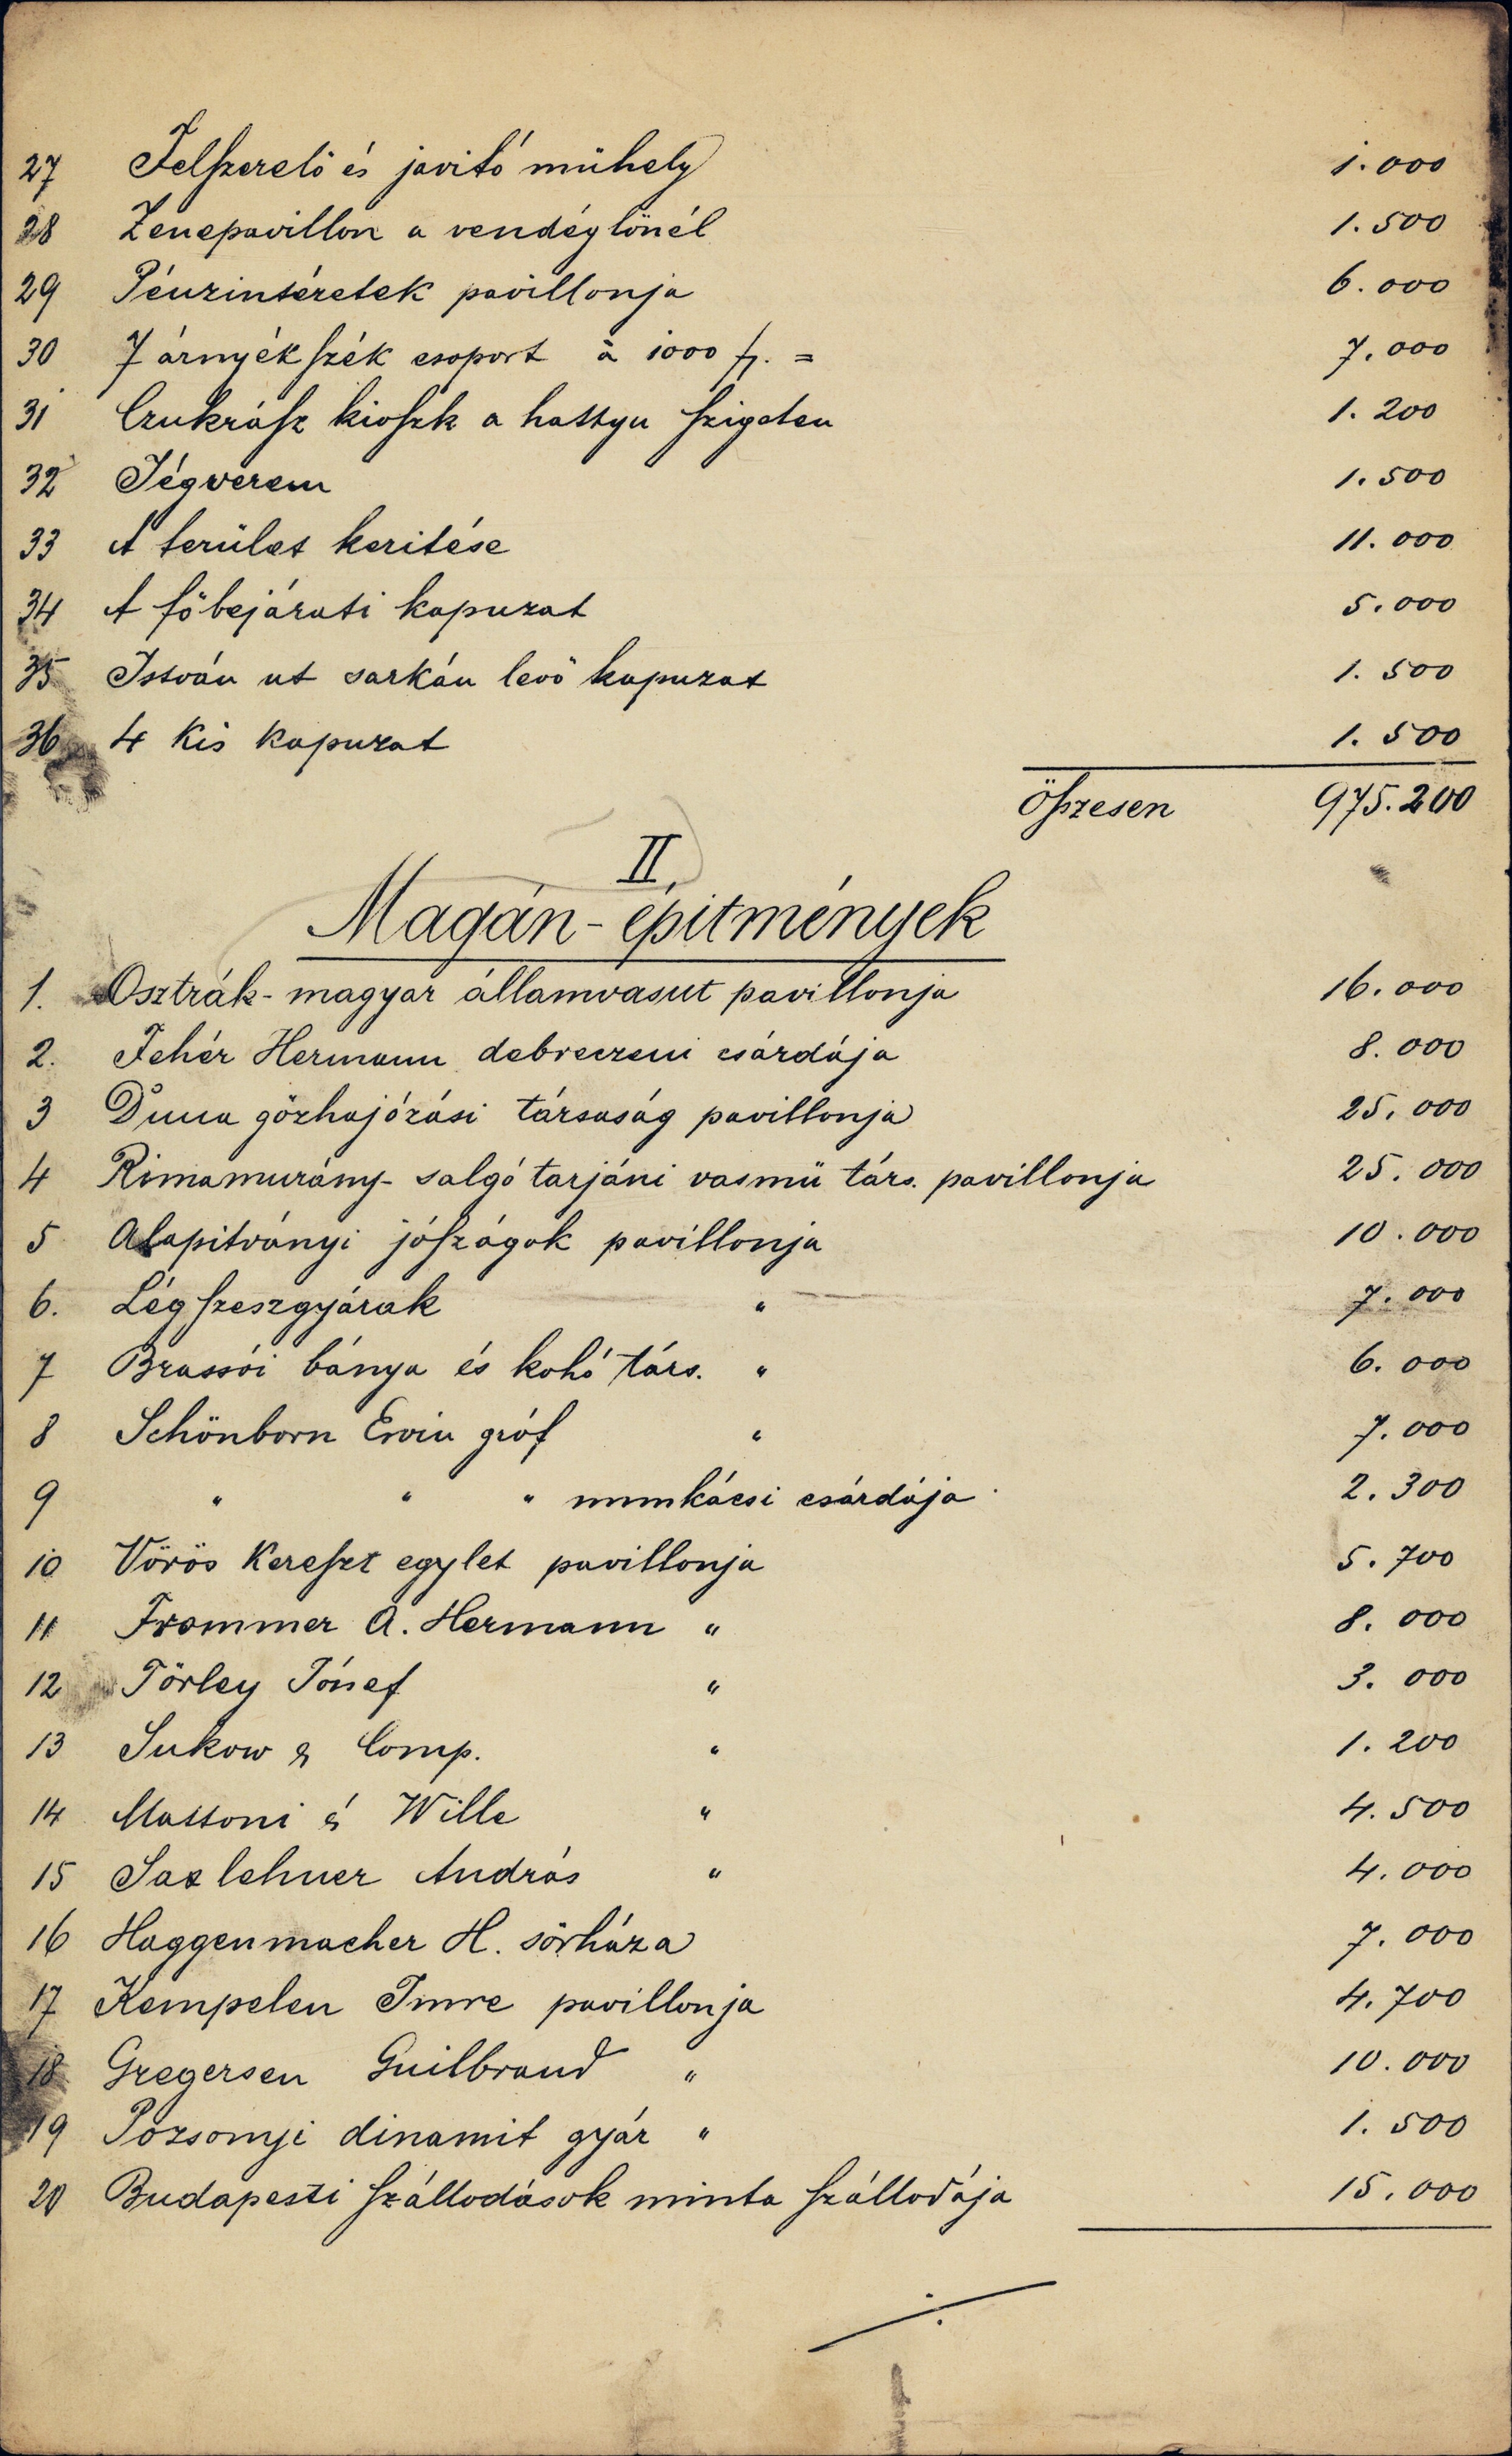 27 Felszerelö és javitó mühely 1.000
28 Zenepavillon a vendéglönél 1.500
29 Pénzintéretek pavillonja 6.000
30 7 árnyékszék csoport à 1000 fr. = 7.000
31 Czukrász kioszk a hattyu szigeten 1.200
32 Jégverem 1.500
33 A terület keritése 11.000
34 A föbejárati kapuzat 5.000
35 István ut sarkán levö kapuzat 1.500
36 4 kis kapuzat 1.500
Összesen 975.200
II.
Magán-épitmények
1. Osztrák-magyar államvasut pavillonja 16.000
2. Fehér Hermann debreczeni csárdája 8.000
3 Duna gözhajózási társaság pavillonja 25.000
4 Rimamurány-salgó tarjáni vasmü társ. pavillonja 25.000
5 Alapitványi jószágok pavillonja 10.000
6. Légszeszgyárak " 7.000
7 Brassói bánya és kohó társ. " 6.000
8 Schönborn Ervin gróf " 7.000
9 " " " munkácsi csárdája 2.300
10 Vörös Kereszt egylet pavillonja 5.700
11 Frommer A. Hermann " 8.000
12 Törley József " 3.000
13 Sukow & Comp. " 1.200
14 Mattoni és Wille " 4.500
15 Saxlehner András " 4.000
16 Haggenmacher H. sörháza 7.000
17 Kempelen Imre pavillonja 4.700
18 Gregersen Guilbrand " 10.000
19 Pozsonyi dinamit gyár " 1.500
20 Budapesti szállodások minta szállodája 15.000